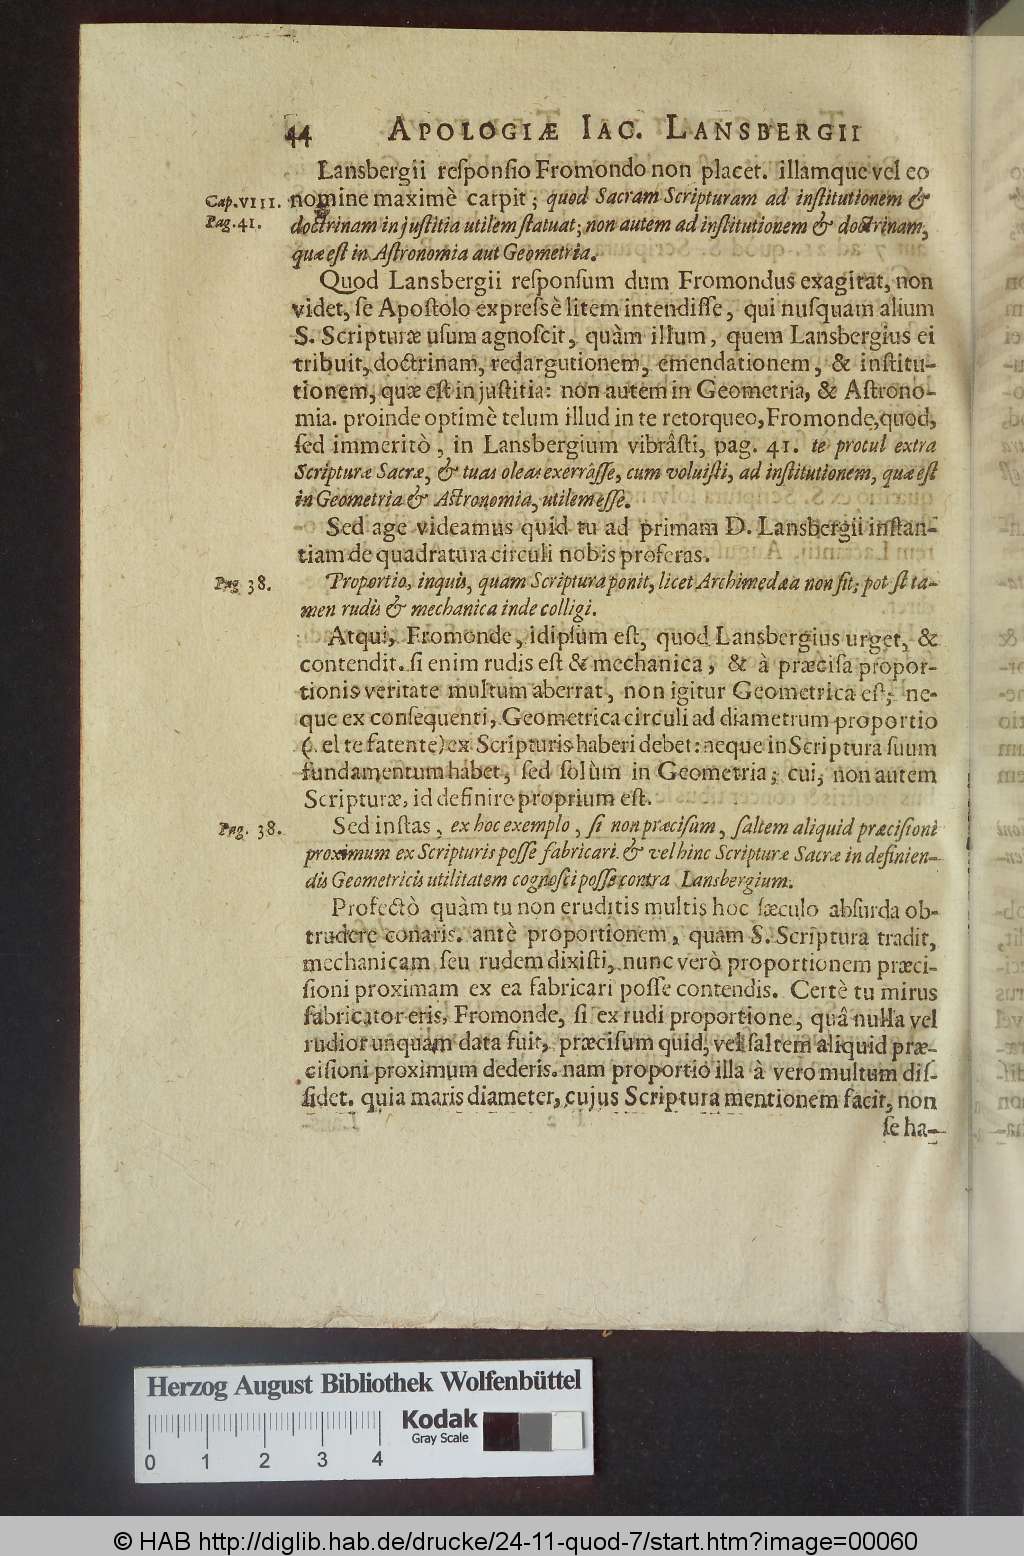 44 APOLOGIÆ IAC. LANSBERGII
Lansbergii responsio Fromondo non placet. illamque vel eo
Cap. VIII. nomine maximè carpit; quod Sacram Scripturam ad institutionem &
Pag. 41. doctrinam in justitia utilem statuat; non autem ad institutionem & doctrinam,
quæ est in Astronomia aut Geometria.
Quod Lansbergii responsum dum Fromondus exagitat, non
videt, se Apostolo expressè litem intendisse, qui nusquam alium
S. Scripturæ usum agnoscit, quàm illum, quem Lansbergius ei
tribuit, doctrinam, redargutionem, emendationem, & institu-
tionem, quæ est in justitia: non autem in Geometria, & Astrono-
mia. proinde optimè telum illud in te retorqueo, Fromonde, quod,
sed immeritò, in Lansbergium vibrâsti, pag. 41. te procul extra
Scripturæ Sacræ, & tuas oleas exerrâsse, cum voluisti, ad institutionem, quæ est
in Geometria & Astronomia, utilem esse.
Sed age videamus quid tu ad primam D. Lansbergii instan-
tiam de quadratura circuli nobis proferas.
Pag. 38. Proportio, inquis, quam Scriptura ponit, licet Archimedæa non sit; pot st ta-
men rudis & mechanica inde colligi.
Atqui, Fromonde, id ipsum est, quod Lansbergius urget, &
contendit. si enim rudis est & mechanica, & à præcisa propor-
tionis veritate multum aberrat, non igitur Geometrica est; ne-
que ex consequenti, Geometrica circuli ad diametrum proportio
( . el te fatente) ex Scripturis haberi debet: neque in Scriptura suum
fundamentum habet, sed solùm in Geometria; cui, non autem
Scripturæ, id definire proprium est.
Pag. 38. Sed instas, ex hoc exemplo, si non præcisum, saltem aliquid præcisioni
proximum ex Scripturis posse fabricari. & vel hinc Scripturæ Sacræ in definien-
dis Geometricis utilitatem cognosci posse contra Lansbergium.
Profectò quàm tu non eruditis multis hoc sæculo absurda ob-
trudere conaris. antè proportionem, quam S. Scriptura tradit,
mechanicam seu rudem dixisti, nunc verò proportionem præci-
sioni proximam ex ea fabricari posse contendis. Certè tu mirus
fabricator eris, Fromonde, si ex rudi proportione, quâ nulla vel
rudior unquam data fuit, præcisum quid, vel saltem aliquid præ-
cisioni proximum dederis. nam proportio illa à vero multum dis-
sidet. quia maris diameter, cujus Scriptura mentionem facit, non
se ha-
Herzog August Bibliothek Wolfenbüttel
Kodak
Gray Scale
0 1 2 3 4
© HAB http://diglib.hab.de/drucke/24-11-quod-7/start.htm?image=00060